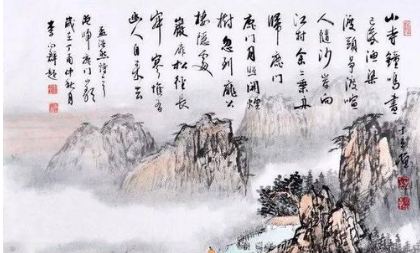 山寺鐘鳴晝
已昏漁梁
渡頭爭渡喧
人隨沙岸向
江村余亦乘舟
歸鹿門
鹿門月照開煙
樹忽到龐公
棲隱處
巖扉松徑長
寂寥惟有
幽人自来去
孟浩然詩
夜歸鹿門歌
丁酉仲秋月